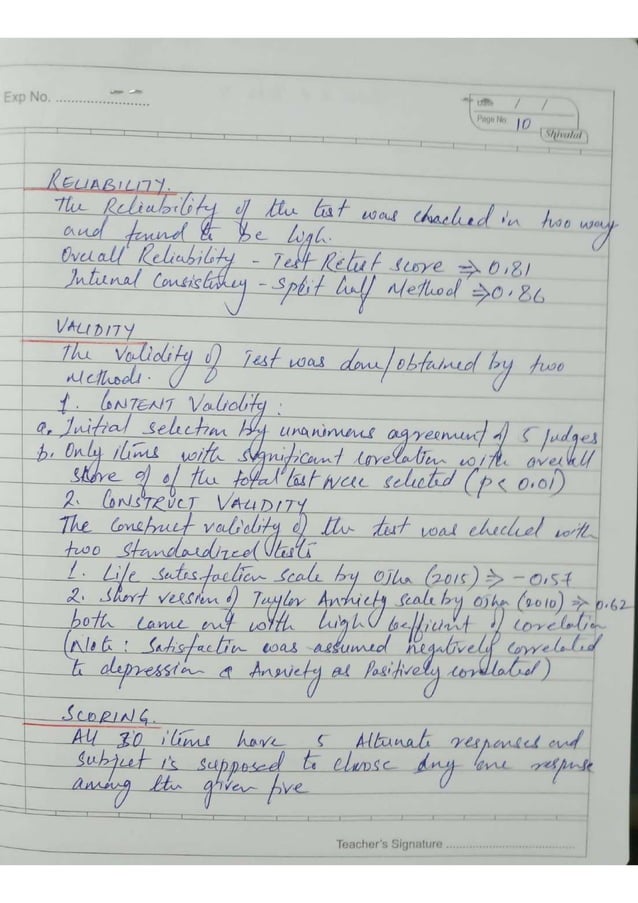 Exp No.
Date / /
Page No. 10
Shivalal
RELIABILITY.
The Reliability of the test was chacked in two way
and found to be high.
Overall Reliability - Test Retest score ⇒ 0.81
Internal Consistency - split half Method ⇒ 0.86
VALIDITY
The Validity of Test was done/obtained by two
Methods.
1. CONTENT Validity :
a. Initial selection by unanimous agreement of 5 Judges
b. Only items with significant corelation with overall
store of of the total test were selected (p < 0.01)
2. CONSTRUCT VALIDITY
The construct validity of the test was checked with
two standardized tests
1. Life satisfaction scale by Ojha (2015) ⇒ -0.57
2. short version of Taylor Anxiety scale by Ojha (2010) ⇒ 0.62
both came out with high coefficient of corelation
(Note : Satisfaction was assumed negatively correlated
to depression & Anxiety as Positively corelated)
SCORING.
All 30 items have 5 Alternate responses and
subject is supposed to choose any one response
among the given five
Teacher's Signature